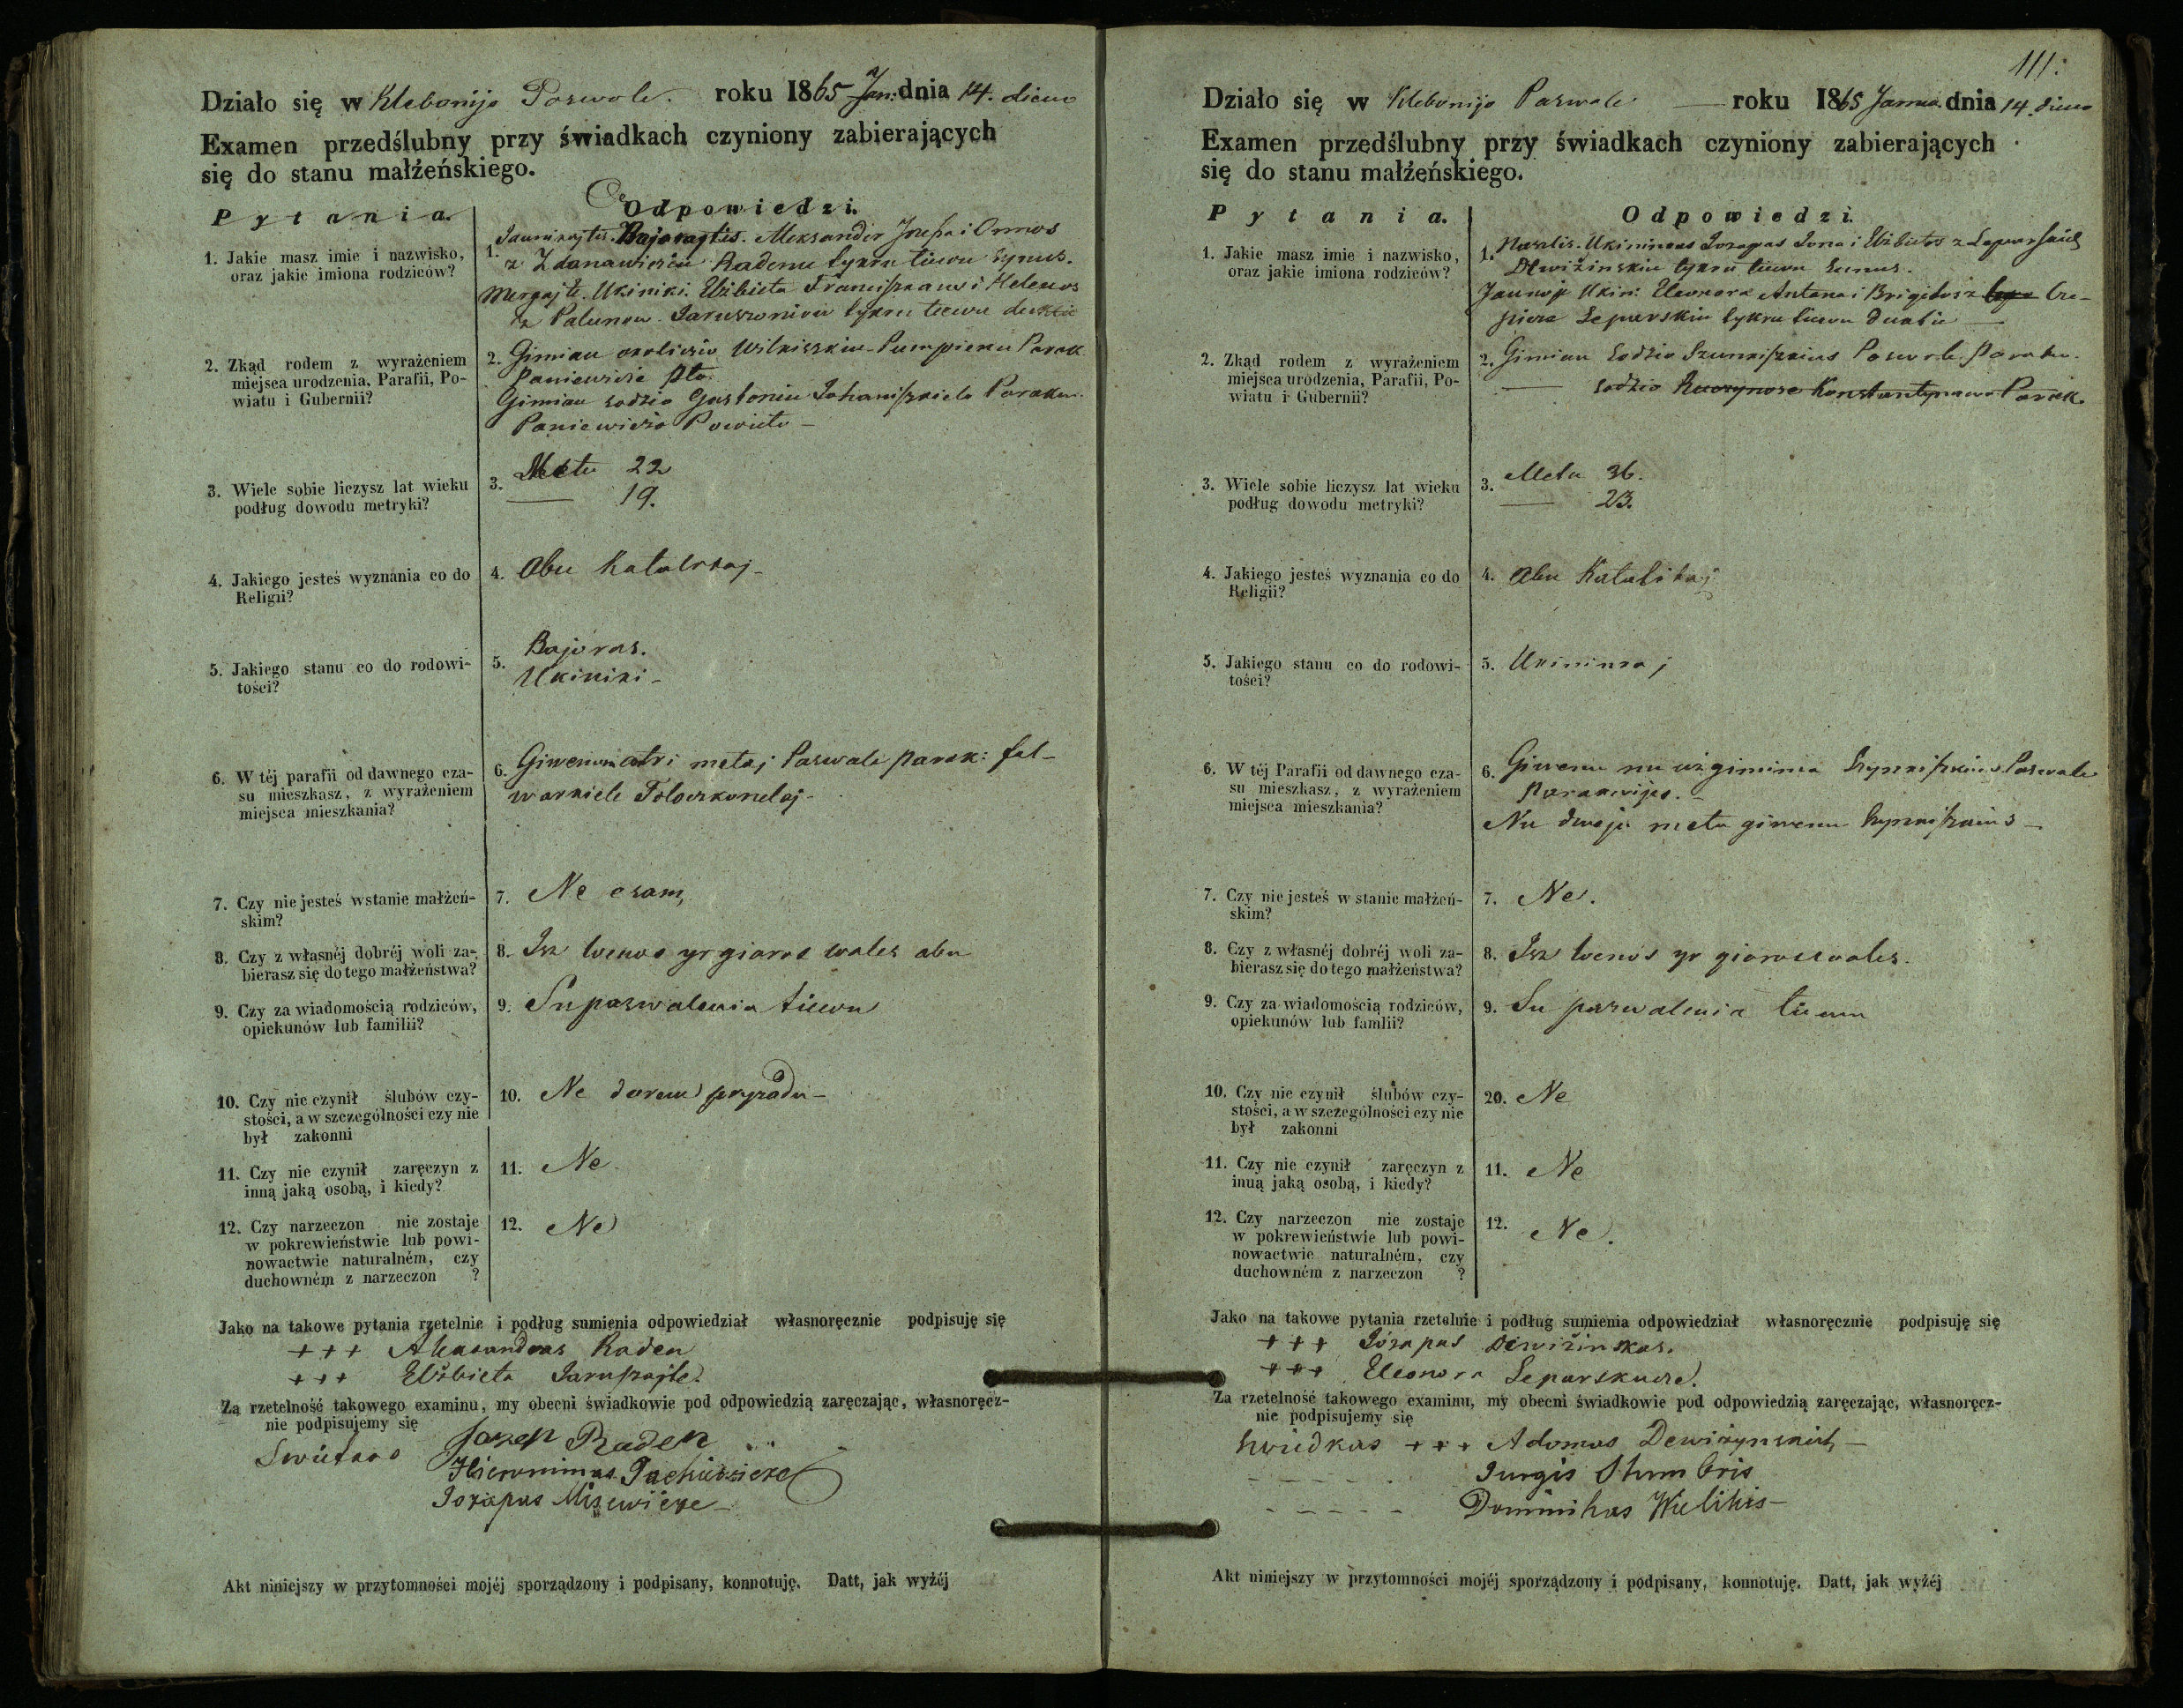 Działo się w Klebonijo Poswole. roku 1865 Jan: dnia 14. dieno
Examen przedślubny przy świadkach czyniony zabierających
się do stanu małżeńskiego.
Pytania. Odpowiedzi.
1. Jakie masz imie i nazwisko,
oraz jakie imiona rodziców?
1. Jaunikajtis. Bajorajtis. Aleksander Jozefa i Onnos
z Zdanawicziu Radenu tykru tiewu Synus.
Mergajte. Ukiniki. Elżbieta Franciszkaus i Helenos
z Palunow Jaruszoniow tykru tiewu duktie
2. Zkąd rodem z wyrażeniem
miejsca urodzenia, Parafii, Po-
wiatu i Gubernii?
2. Gimiau okoliczio Wilkiszkiu Pumpienu Parak
Paniewieżio Pto.
Gimiau sodzio Gastoniu Johaniszkielo Parakw.
Paniewieżio Powieto —
3. Wiele sobie liczysz lat wieku
podług dowodu metryki?
3. Metu 22
— 19.
4. Jakiego jesteś wyznania co do
Religii?
4. Abu Katalikaj —
5. Jakiego stanu co do rodowi-
tości?
5. Bajoras.
Ukiniki —
6. W téj parafii od dawnego cza-
su mieszkasz, z wyrażeniem
miejsca mieszkania?
6. Giwenom antri metaj Paswale parak: fal-
warkiele
7. Czy nie jesteś wstanie małżeń-
skim?
7. Ne esam,
8. Czy z własnéj dobréj woli za-
bierasz się do tego małżeństwa?
8. Isz wenos yr gieros wales abu
9. Czy za wiadomością rodziców,
opiekunów lub familii?
9. Su paswalenia tiewu
10. Czy nie czynił ślubów czy-
stości, a w szczególności czy nie
był zakonni
10. Ne darem pryżadu —
11. Czy nie czynił zaręczyn z
inną jaką osobą, i kiedy?
11. Ne
12. Czy narzeczon nie zostaje
w pokrewieństwie lub powi-
nowactwie naturalném, czy
duchowném z narzeczon ?
12. Ne
Jako na takowe pytania rzetelnie i podług sumienia odpowiedział własnoręcznie podpisuję się
+++ Alexandras Raden
+++ Elżbieta Jaruszajte.
Za rzetelność takowego examinu, my obecni świadkowie pod odpowiedzią zaręczając, własnoręcz-
nie podpisujemy się
Swietkas Jozep Raden
Hieronimas
Jozapas Misewicze —
Akt niniejszy w przytomności mojéj sporządzony i podpisany, konnotuję. Datt, jak wyżéj
111.
Działo się w Klebonijo Paswale — roku 1865 Janua. dnia 14. dieno
Examen przedślubny przy świadkach czyniony zabierających
się do stanu małżeńskiego.
Pytania. Odpowiedzi.
1. Jakie masz imie i nazwisko,
oraz jakie imiona rodziców?
1. Naszlis. Ukininkas Jozapas Jona i Elżbietos z
Dewiżinskiu tykru tiewu Sunus.
Jaunoji Ukin: Eleonora Antona i Brigidos z Cze-
piene Leparskiu tykru tiewu duktie —
2. Zkąd rodem z wyrażeniem
miejsca urodzenia, Parafii, Po-
wiatu i Gubernii?
2. Gimiau Sodzio Poswole Parakw.
— sodzio Konstantynawo Parak.
3. Wiele sobie liczysz lat wieku
podług dowodu metryki?
3. Metu 36.
— 23.
4. Jakiego jesteś wyznania co do
Religii?
4. Abu Katalikaj
5. Jakiego stanu co do rodowi-
tości?
5. Ukininkaj
6. W téj Parafii od dawnego cza-
su mieszkasz, z wyrażeniem
miejsca mieszkania?
6. Giwenu nu użgimima Paswale
Parakwijos. —
Nu dweju metu giwenu
7. Czy nie jesteś w stanie małżeń-
skim?
7. Ne.
8. Czy z własnéj dobréj woli za-
bierasz się do tego małżeństwa?
8. Isz wenos yr gieros wales.
9. Czy za wiadomością rodziców,
opiekunów lub famlii?
9. Su paswalenia tiewu
10. Czy nie czynił ślubów czy-
stości, a w szczególności czy nie
był zakonni
20. Ne
11. Czy nie czynił zaręczyn z
inuą jaką osobą, i kiedy?
11. Ne
12. Czy narzeczon nie zostaje
w pokrewieństwie lub powi-
nowactwie naturalném, czy
duchowném z narzeczon ?
12. Ne.
Jako na takowe pytania rzetelnie i podług sumienia odpowiedział własnoręcznie podpisuję się
+++ Józapas Dewiżinskas.
+++ Eleonora Leparskucze.
Za rzetelność takowego examinu, my obecni świadkowie pod odpowiedzią zaręczając, własnoręcz-
nie podpisujemy się
Swiedkas +++ Adomas Dewiżynskis —
- - - - - Jurgis Stumbris
- - - - - Dominikas Wielikis —
Akt niniejszy w przytomności mojéj sporządzony i podpisany, konnotuję. Datt, jak wyżéj